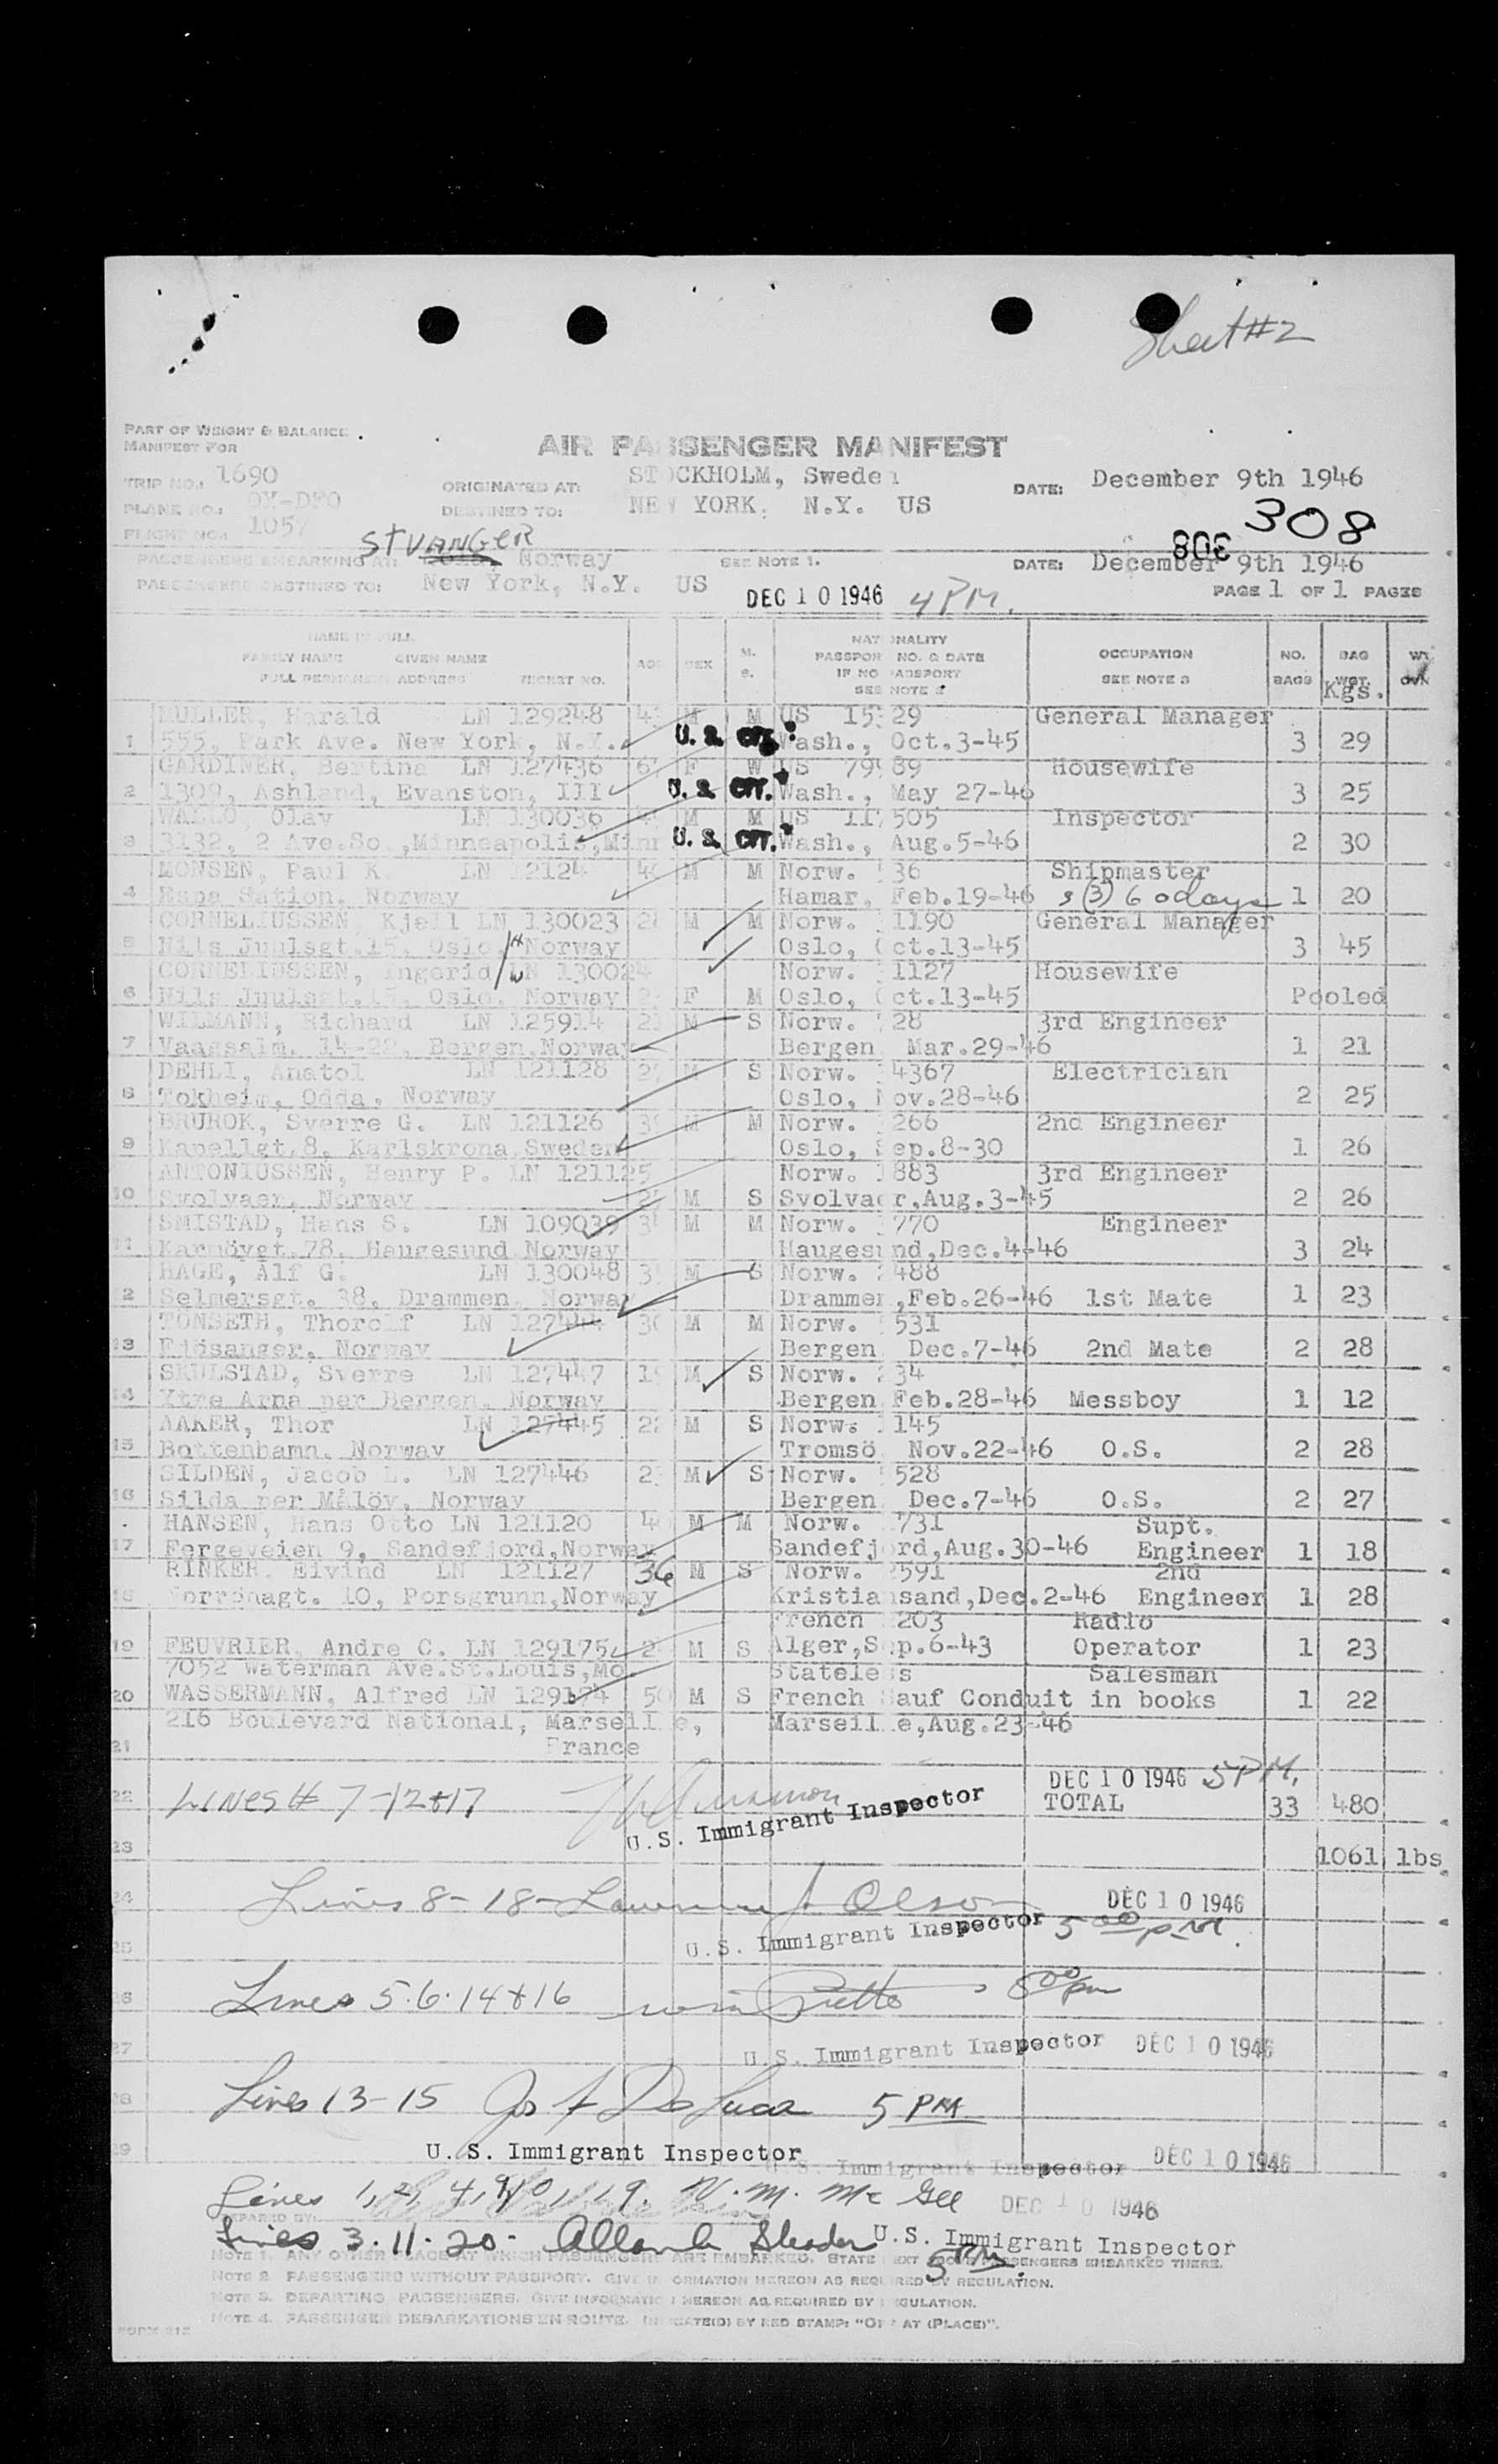 Sheet #2
PART OF WEIGHT & BALANCE
MANIFEST FOR
AIR PASSENGER MANIFEST
TRIP NO.: 1690
ORIGINATED AT: STOCKHOLM, Sweden
DATE: December 9th 1946
PLANE NO.:
DESTINED TO: NEW YORK, N.Y. US
308
FLIGHT NO.: 1057
STVANGER
308
PASSENGERS EMBARKING AT: Norway
SEE NOTE 1.
DATE: December 9th 1946
PASSENGERS DESTINED TO: New York, N.Y. US
DEC 10 1946 4 PM.
PAGE 1 OF 1 PAGES
NAME IN FULL
FAMILY NAME GIVEN NAME
FULL PERMANENT ADDRESS TICKET NO.
AGE SEX M. S.
NATIONALITY
PASSPORT NO. & DATE
IF NO PASSPORT
SEE NOTE 2
OCCUPATION
SEE NOTE 3
NO. BAGS
BAG WGT. Kgs.
MULLER, Harald LN 129248 M M US 29 General Manager
1 555, Park Ave. New York, N.Y. U.S. CIT. Wash., Oct.3-45 3 29
GARDINER, Bertina LN 127436 F W US 89 Housewife
2 1309, Ashland, Evanston, Ill U.S. CIT. Wash., May 27-46 3 25
Olav LN 130036 M M US 505 Inspector
3 3132, 2 Ave.So.,Minneapolis,Minn U.S. CIT. Wash., Aug.5-46 2 30
MONSEN, Paul K. LN 12124 M M Norw. 36 Shipmaster
4 Espa Sation, Norway Hamar, Feb.19-46 (3) 60 days 1 20
CORNELIUSSEN Kjell LN 130023 M M Norw. 1190 General Manager
5 Nils Juulsgt.15, Oslo, Norway Oslo, Oct.13-45 3 45
CORNELIUSSEN, Ingerid LN 130024 Norw. 1127 Housewife
6 Nils Juulsgt.15, Oslo, Norway F M Oslo, Oct.13-45 Pooled
WILMANN, Richard LN 125914 M S Norw. 28 3rd Engineer
7 Vaagsalm. 14-22, Bergen,Norway Bergen Mar.29-46 1 21
DEHLI, Anatol LN 121128 M S Norw. 4367 Electrician
8 Tokheim, Odda, Norway Oslo, Nov.28-46 2 25
BRUROK, Sverre G. LN 121126 M M Norw. 266 2nd Engineer
9 Kapellgt.8, Karlskrona,Sweden Oslo, Sep.8-30 1 26
ANTONIUSSEN, Henry P. LN 121125 Norw. 883 3rd Engineer
10 Svolvaer, Norway M S Svolvaer,Aug.3-45 2 26
SMISTAD, Hans S. LN 109039 M M Norw. 770 Engineer
11 Karmöygt.78, Haugesund Norway Haugesund,Dec.4-46 3 24
HAGE, Alf G. LN 130048 M S Norw. 488
12 Selmersgt. 38, Drammen, Norway Drammen,Feb.26-46 1st Mate 1 23
TONSETH, Thorolf LN 127444 M M Norw. 531
13 Fjösanger, Norway Bergen Dec.7-46 2nd Mate 2 28
SKULSTAD, Sverre LN 127447 M S Norw. 34
14 Ytre Arna per Bergen, Norway Bergen Feb.28-46 Messboy 1 12
AAKER, Thor LN 127445 M S Norw. 145
15 Bottenhamn, Norway Tromsö Nov.22-46 O.S. 2 28
SILDEN, Jacob L. LN 127446 M S Norw. 528
16 Silda per Målöy, Norway Bergen Dec.7-46 O.S. 2 27
HANSEN, Hans Otto LN 121120 M M Norw. 731 Supt.
17 Fergeveien 9, Sandefjord,Norway Sandefjord,Aug.30-46 Engineer 1 18
RINKER, Eivind LN 121127 36 M S Norw. 2591 2nd
18 10, Porsgrunn,Norway Kristiansand,Dec.2-46 Engineer 1 28
French 203 Radio
19 FEUVRIER, Andre C. LN 129175 M S Alger,Sep.6-43 Operator 1 23
7052 Waterman Ave.St.Louis,Mo. Stateless Salesman
20 WASSERMANN, Alfred LN 129174 50 M S French Sauf Conduit in books 1 22
216 Boulevard National, Marseille, Marseille,Aug.23-46
21 France
DEC 10 1946 5 PM.
22 LINES # 7-12+17 TOTAL 33 480
U.S. Immigrant Inspector
23 1061 lbs
24 Lines 8-18- Lawrence J Olson DEC 10 1946
U.S. Immigrant Inspector 5 00 pm.
25
26 Lines 5.6.14+16 8 00 pm
27 U.S. Immigrant Inspector DEC 10 1946
28 Lines 13-15 Jos A De Luca 5 PM
29 U.S. Immigrant Inspector
U.S. Immigrant Inspector DEC 10 1946
Lines 1, 2, 4, 9, 10, 19. W. M. McGee DEC 10 1946
PREPARED BY:
Lines 3.11.20- U.S. Immigrant Inspector
5 PM.
NOTE 1. ANY OTHER PLACE AT WHICH PASSENGERS ARE EMBARKED. STATE NEXT ABOVE PASSENGERS EMBARKED THERE.
NOTE 2. PASSENGERS WITHOUT PASSPORT. GIVE INFORMATION HEREON AS REQUIRED BY REGULATION.
NOTE 3. DEPARTING PASSENGERS. GIVE INFORMATION HEREON AS REQUIRED BY REGULATION.
NOTE 4. PASSENGER DEBARKATIONS EN ROUTE. INDICATE(D) BY RED STAMP: "OFF AT (PLACE)".
FORM 212